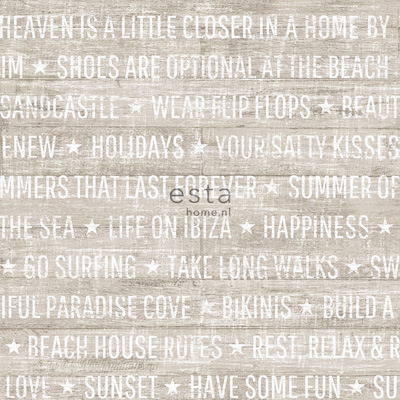 HEAVEN IS A LITTLE CLOSER IN A HOME BY
IM ★ SHOES ARE OPTIONAL AT THE BEACH
SANDCASTLE ★ WEAR FLIP FLOPS ★ BEAUT
ENEW ★ HOLIDAYS ★ YOUR SALTY KISSES
MMERS THAT LAST FOREVER ★ SUMMER OF
esta
home.nl
THE SEA ★ LIFE ON IBIZA ★ HAPPINESS ★
★ GO SURFING ★ TAKE LONG WALKS ★ SW
IFUL PARADISE COVE ★ BIKINIS ★ BUILD A
★ BEACH HOUSE RULES ★ REST, RELAX & R
LOVE ★ SUNSET ★ HAVE SOME FUN ★ SU